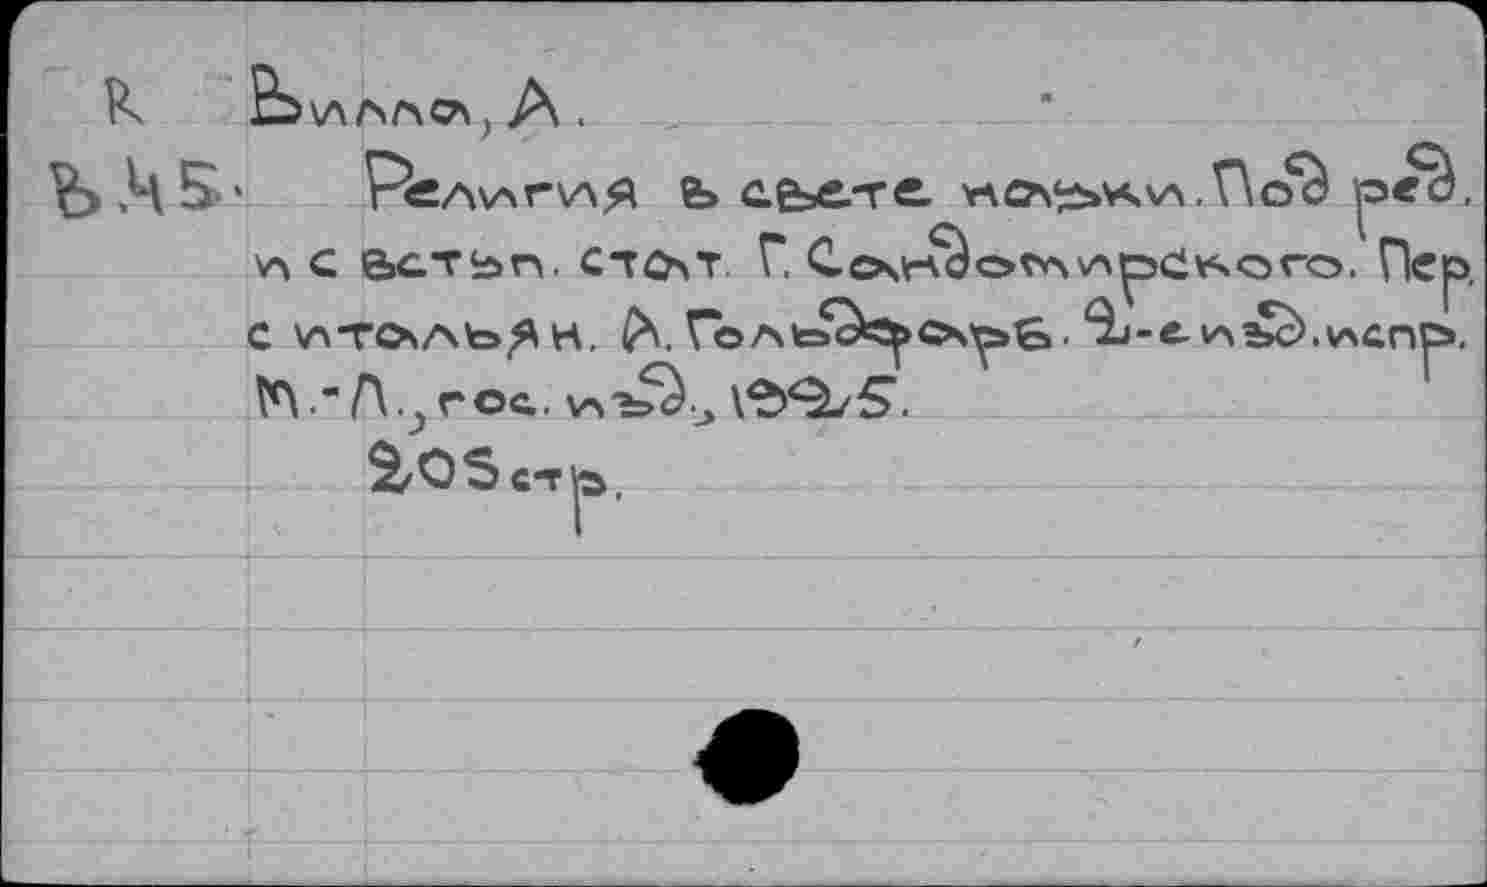 R Вилла, А.
В.45. Религия в свете науки. Под ред.
и с вступ. стат. Г. Сандомирского. Пер.
с итальян. А. Гольдфарб. 2-е изд. испр.
М.-Л., гос. изд., 1925.
205 стр.